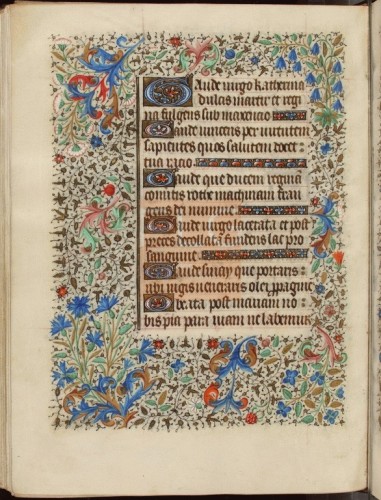 Gaude virgo katherina
dulcis martir et regi
na fulgens sub maxencio
Gaude vincens per virtutem
sapientes quos salutem docet
tua racio
Gaude que ducem regina
comitis rotte machinam fran
gens dei numine
Gaude virgo lactata et post
preces decollata fundens lac pro
sanguine
Gaude sinay que portaris
ubi iugis veneraris olei
Beata post mariam no
bis pia para viam ne labemur